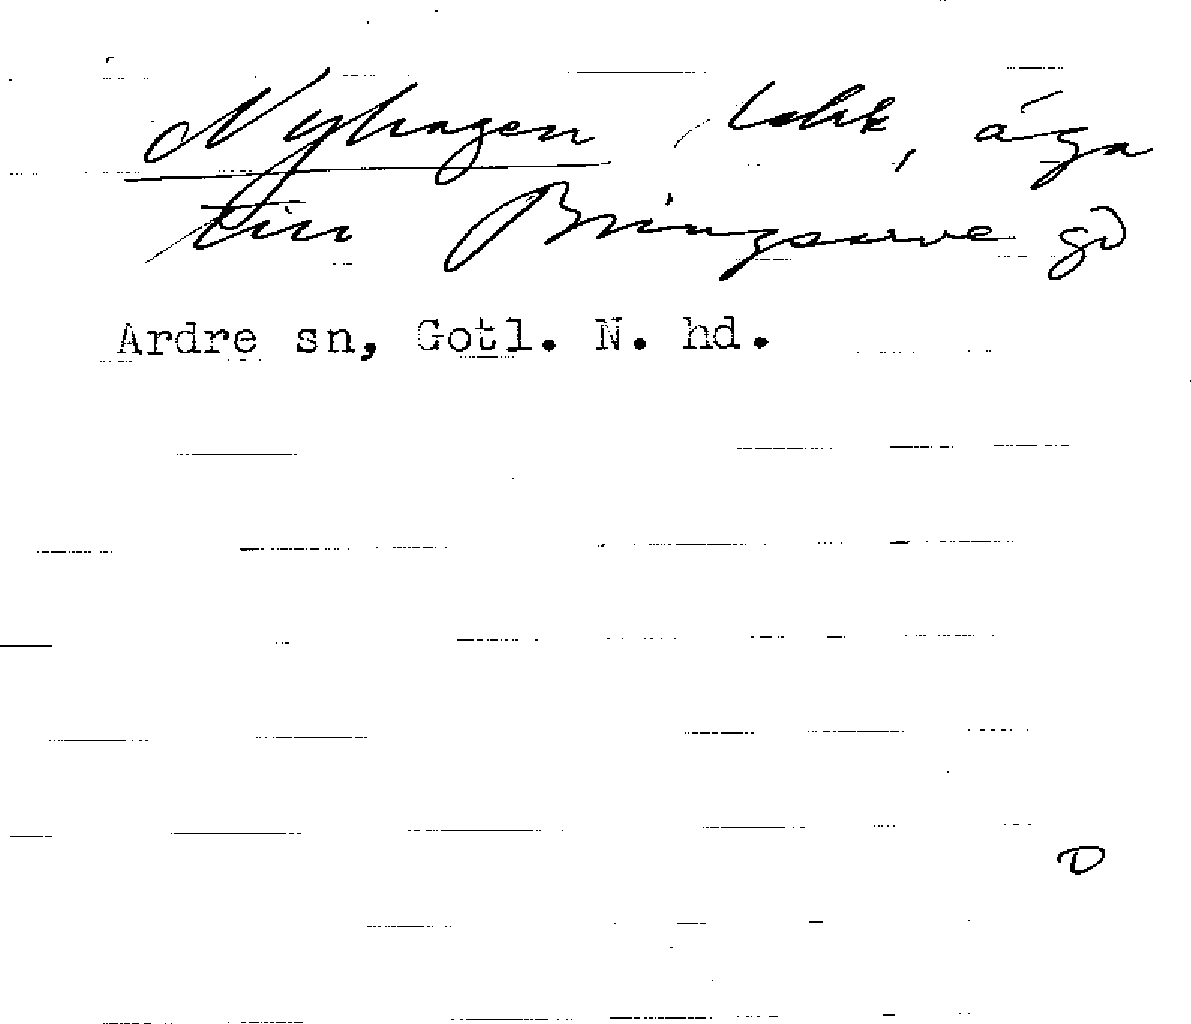 Nyhagen äga
till Bringsarve gd
Ardre sn, Gotl. N. hd.
D